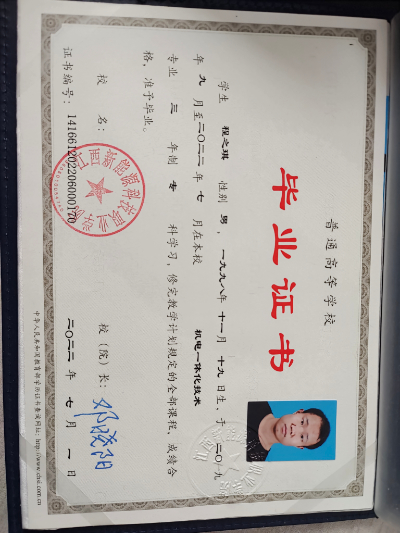 普通高等学校
毕业证书
学生 程之琪 性别 男，一九九八年十一月十九日生，于二〇一九
年九月至二〇二二年七月在本校 机电一体化技术
专业 三年制 专科学习，修完教学计划规定的全部课程，成绩合
格，准予毕业。
校 名：
江西新能源科技职业
校（院）长：
证书编号：141661202206000170
二〇二二年七月一日
中华人民共和国教育部学历证书查询网址：http://www.chsi.com.cn